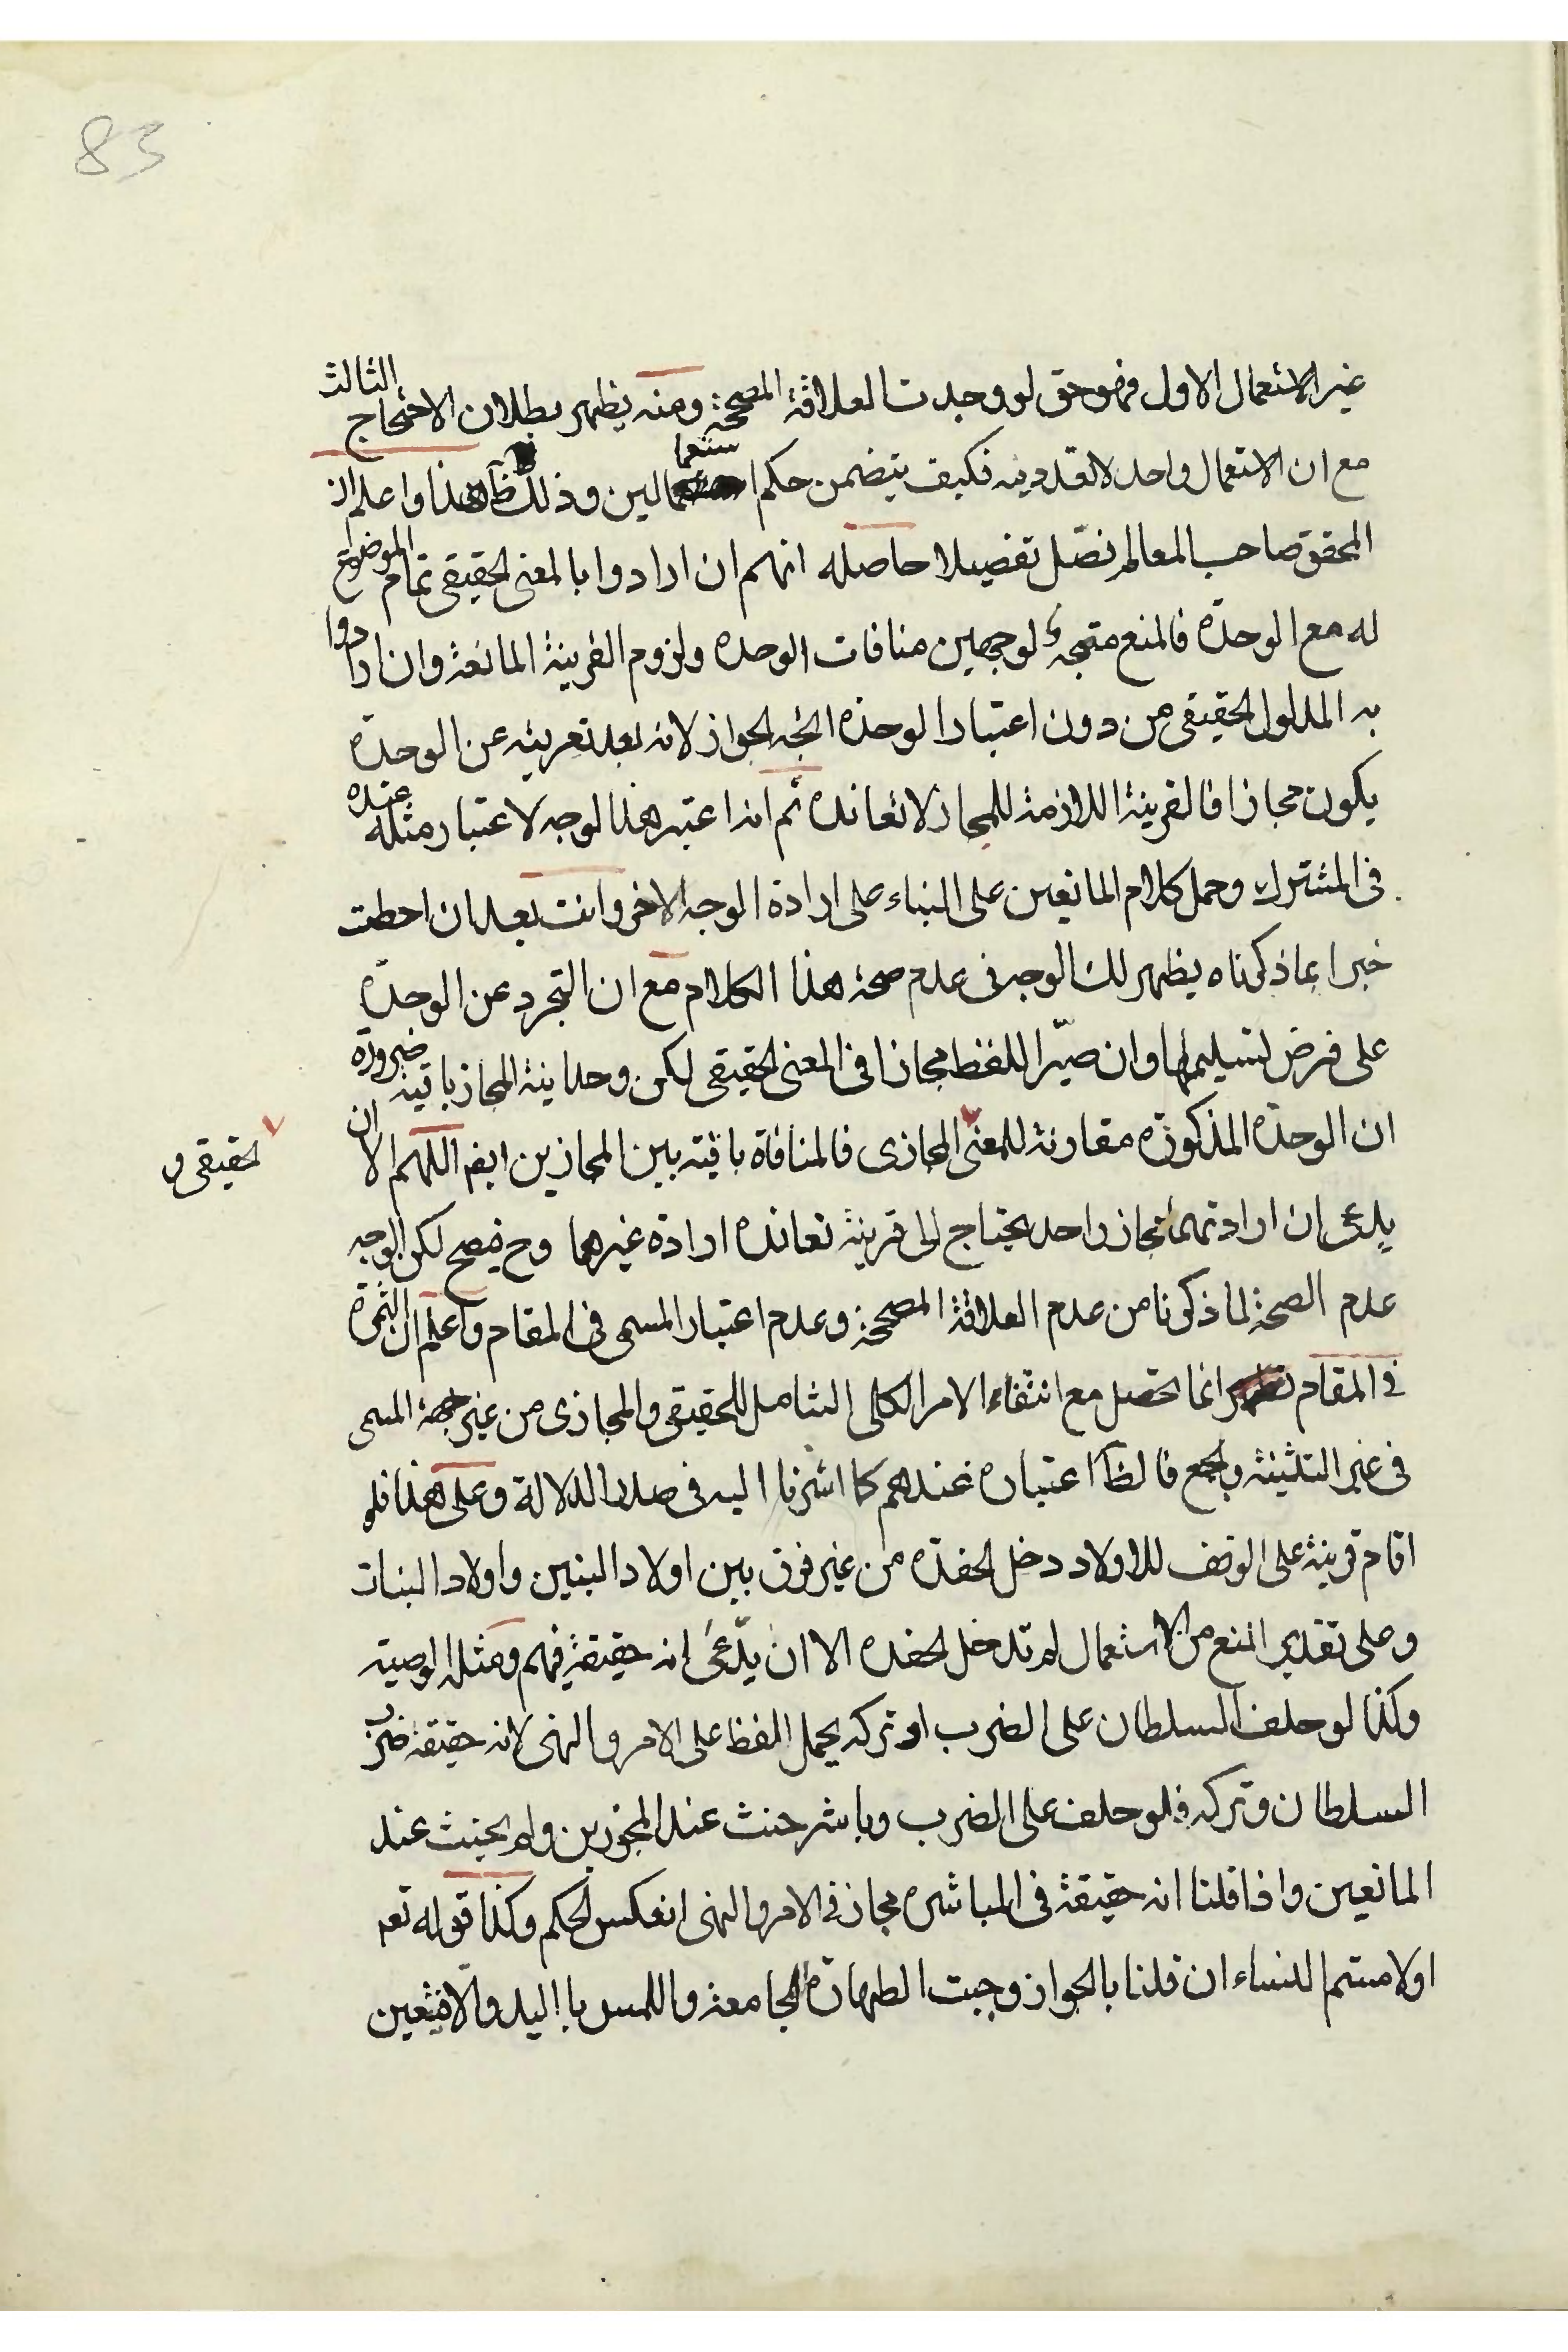 83
غير الاستعمال الاول فهو حق لو وجدت العلاقة المصححة ومنه يظهر بطلان الاحتجاج الثالث
مع ان الاستعمال واحد لا تعدد فيه فكيف يتضمن حكم استعمالين وذلك ظ هذا واعلم ان
المحقق صاحب المعالم فصّل تفصيلا حاصله انهم ان ارادوا بالمعنى الحقيقى تمام الموضوع
له مع الوحدة فالمنع متجه لوجهين منافات الوحدة ولزوم القرينة المانعة وان ارادوا
به المدلول الحقيقى من دون اعتبار الوحدة اتجه الجواز لانه بعد تعريته عن الوحدة
يكون مجازا فالقرينة اللازمة للمجاز لا تعانده ثم انه اعتبر هذا الوجه لاعتبار مثله عنده
فى المشترك وحمل كلام المانعين على البناء على ارادة الوجه الاخر وانت بعد ان احطت
خبرا بما ذكرناه يظهر لك الوجه فى عدم صحة هذا الكلام مع ان التجرد عن الوحدة
على فرض تسليمها وان صيّر اللفظ مجازا فى المعنى الحقيقى لكن وحدانية المجاز باقية ضرورة
ان الوحدة المذكورة مقارنة للمعنى المجازى فالمنافاة باقية بين المجازين ايض اللهم الا ان
حقيقى و
يدعى ان ارادتهما مجاز واحد يحتاج الى قرينة تعانده ارادة غيرهما وح فيصح لكن الوجه
عدم الصحة لما ذكرنا من عدم العلاقة المصححة وعدم اعتبار المسمى فى المقام واعلم ان الثمرة
فى المقام انما تحصل مع انتفاء الامر الكلى الشامل للحقيقى والمجازى من غير جهة المسمى
فى غير التثنية والجمع فالظ اعتباره عندهم كما اشرنا اليه فى صدر الدلالة وعلى هذا فلو
اقام قرينة على الوقف للاولاد دخل الحفدة من غير فرق بين اولاد البنين واولاد البنات
وعلى تقدير المنع من الاستعمال لم تدخل الحفدة الا ان يدّعى انه حقيقة فيهم ومثله الوصية
وكذا لو حلف السلطان على الضرب او تركه يحمل اللفظ على الامر والنهى لانه حقيقة ضرب
السلطان وتركه فلو حلف على الضرب وباشر حنث عند المجوزين ولم يحنث عند
المانعين واذا قلنا انه حقيقة فى المباشرة مجاز فى الامر والنهى انعكس الحكم وكذا قوله تعم
اولامستم النساء ان قلنا بالجواز وجبت الطهارة للجامعة واللمس باليد والا فيتعين